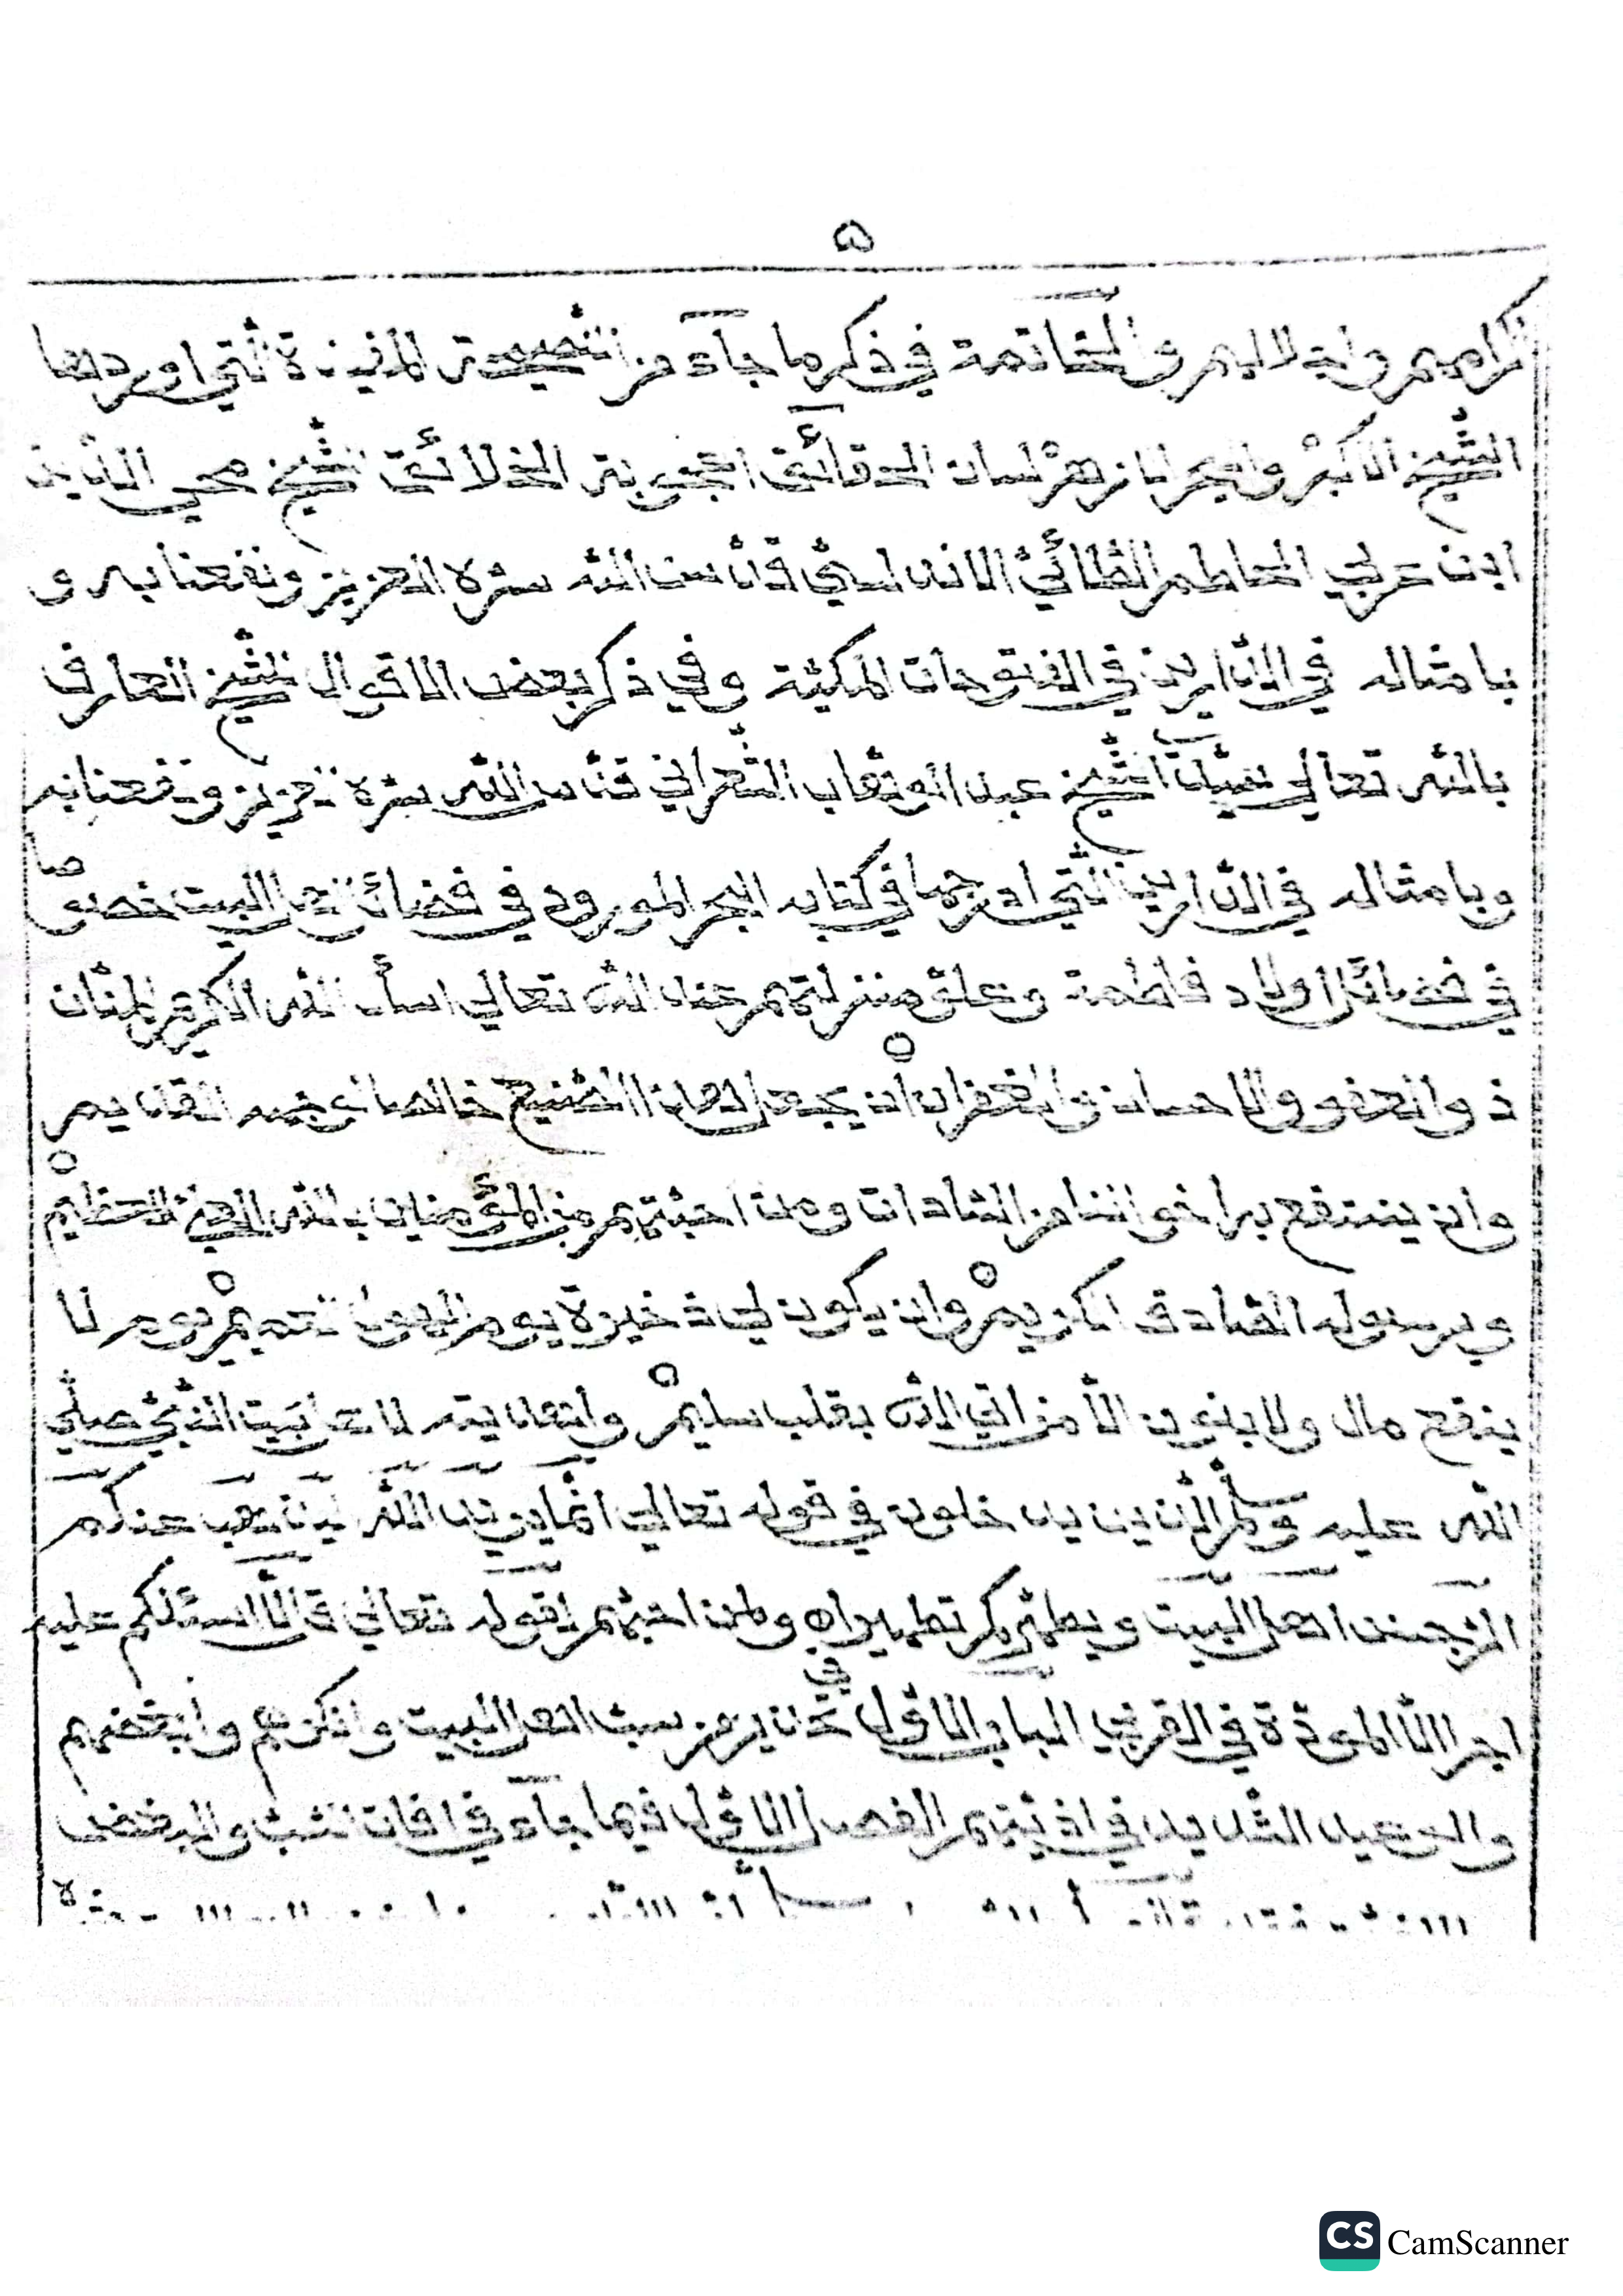 ۵
اكرامهم واجلالهم والخاتمة في ذكر ما جآء من النصيحة المفيدة التي اوردها
الشيخ الاكبر والبحر الازهر لسان الحقائق اعجوبة الخلائق الشيخ محي الدين
ابن عربي الحاطم الطائي الاندلسي قدس الله سره العزيز ونفعنا به و
بامثاله في الدارين في الفتوحات المكية وفي ذكر بعض الاقوال للشيخ العارف
بالله تعالى سيدنا الشيخ عبد الوهاب الشعراني قدس الله سره العزيز ونفعنا به
وبامثاله في الدارين التي ادرجها في كتابه البحر المورود في فضائل اهل البيت خصوصا
في فضائل اولاد فاطمة وعلو منزلتهم عند الله تعالى اسأل الله الكريم المنان
ذو العفو والاحسان والغفران أن يجعل هذا الصنيع خالصا لوجهه القديم
وان ينتفع به اخواننا من السادات ومن احبتهم من المؤمنين بالله العلي العظيم
وبرسوله الصادق الكريم وان يكون لي ذخيرة يوم الهول العميم يوم لا
ينفع مال ولا بنون الا من اتى الله بقلب سليم واهديته لاهل بيت النبي صلى
الله عليه وسلم الذين يدخلون في قوله تعالى انما يريد الله ليذهب عنكم
الرجس اهل البيت ويطهركم تطهيرا ولمن احبهم لقوله تعالى قل لا اسئلكم عليه
اجرا الا المودة في القربى الباب الاول في تحذير من سب اهل البيت وانكرهم وابغضهم
والوعيد الشديد في اذيتهم الفصل الاول فيما جآء في افات السب والبغض